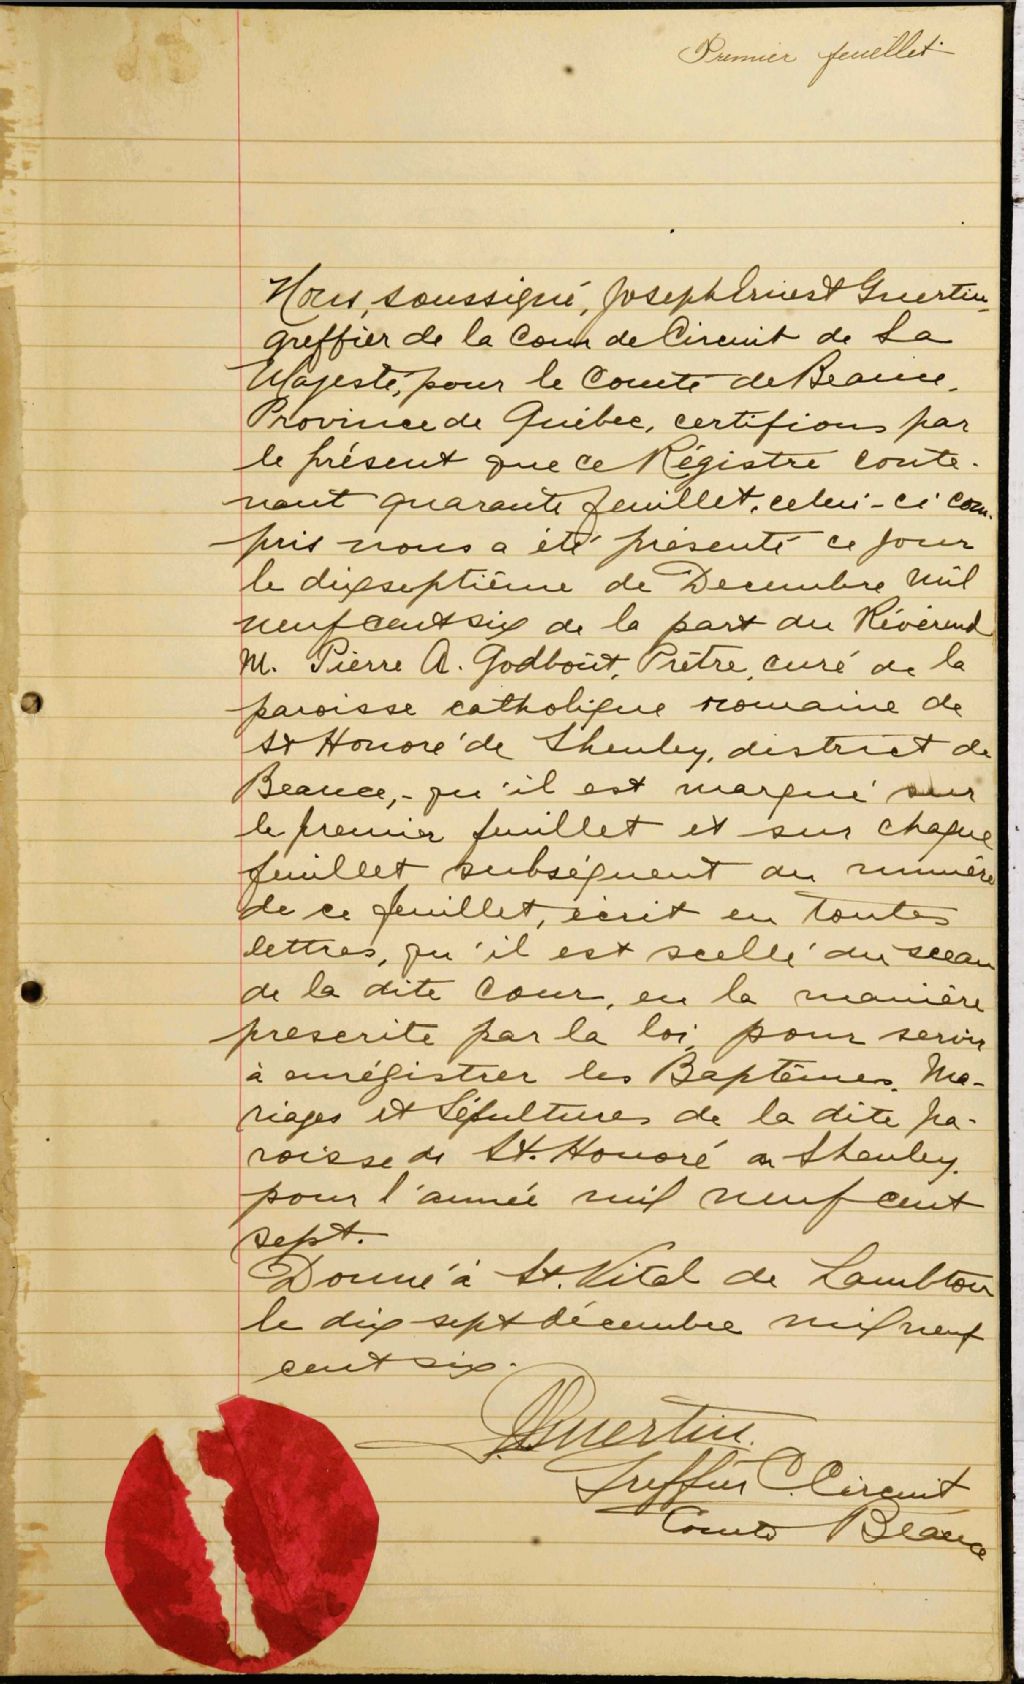 Premier feuillet
Nous, soussigné, Joseph Ernest Guertin,
greffier de la Cour de Circuit de Sa
Majesté, pour le Comté de Beauce,
Province de Québec, certifions par
le présent que ce Régistre conte-
nant quarante feuillet, celui-ci com-
pris nous a été présenté ce jour
le dixseptième de Decembre mil
neuf cent six de la part du Révérend
M. Pierre A. Godbout, Prêtre, curé de la
paroisse catholique romaine de
St Honoré de Shenley, district de
Beauce,- qu'il est marqué sur
le premier feuillet et sur chaque
feuillet subséquent du numéro
de ce feuillet, écrit en toutes
lettres, qu'il est scellé du sceau
de la dite Cour, en la manière
prescrite par la loi, pour servir
à enrégistrer les Baptêmes, Ma-
riages et Sépultures de la dite pa-
roisse de St. Honoré de Shenley,
pour l'année mil neuf cent
sept.
Donné à St. Vital de Lambton
le dix sept décembre mil neuf
cent six.
Guertin
Greffier C. Circuit
Comté Beauce